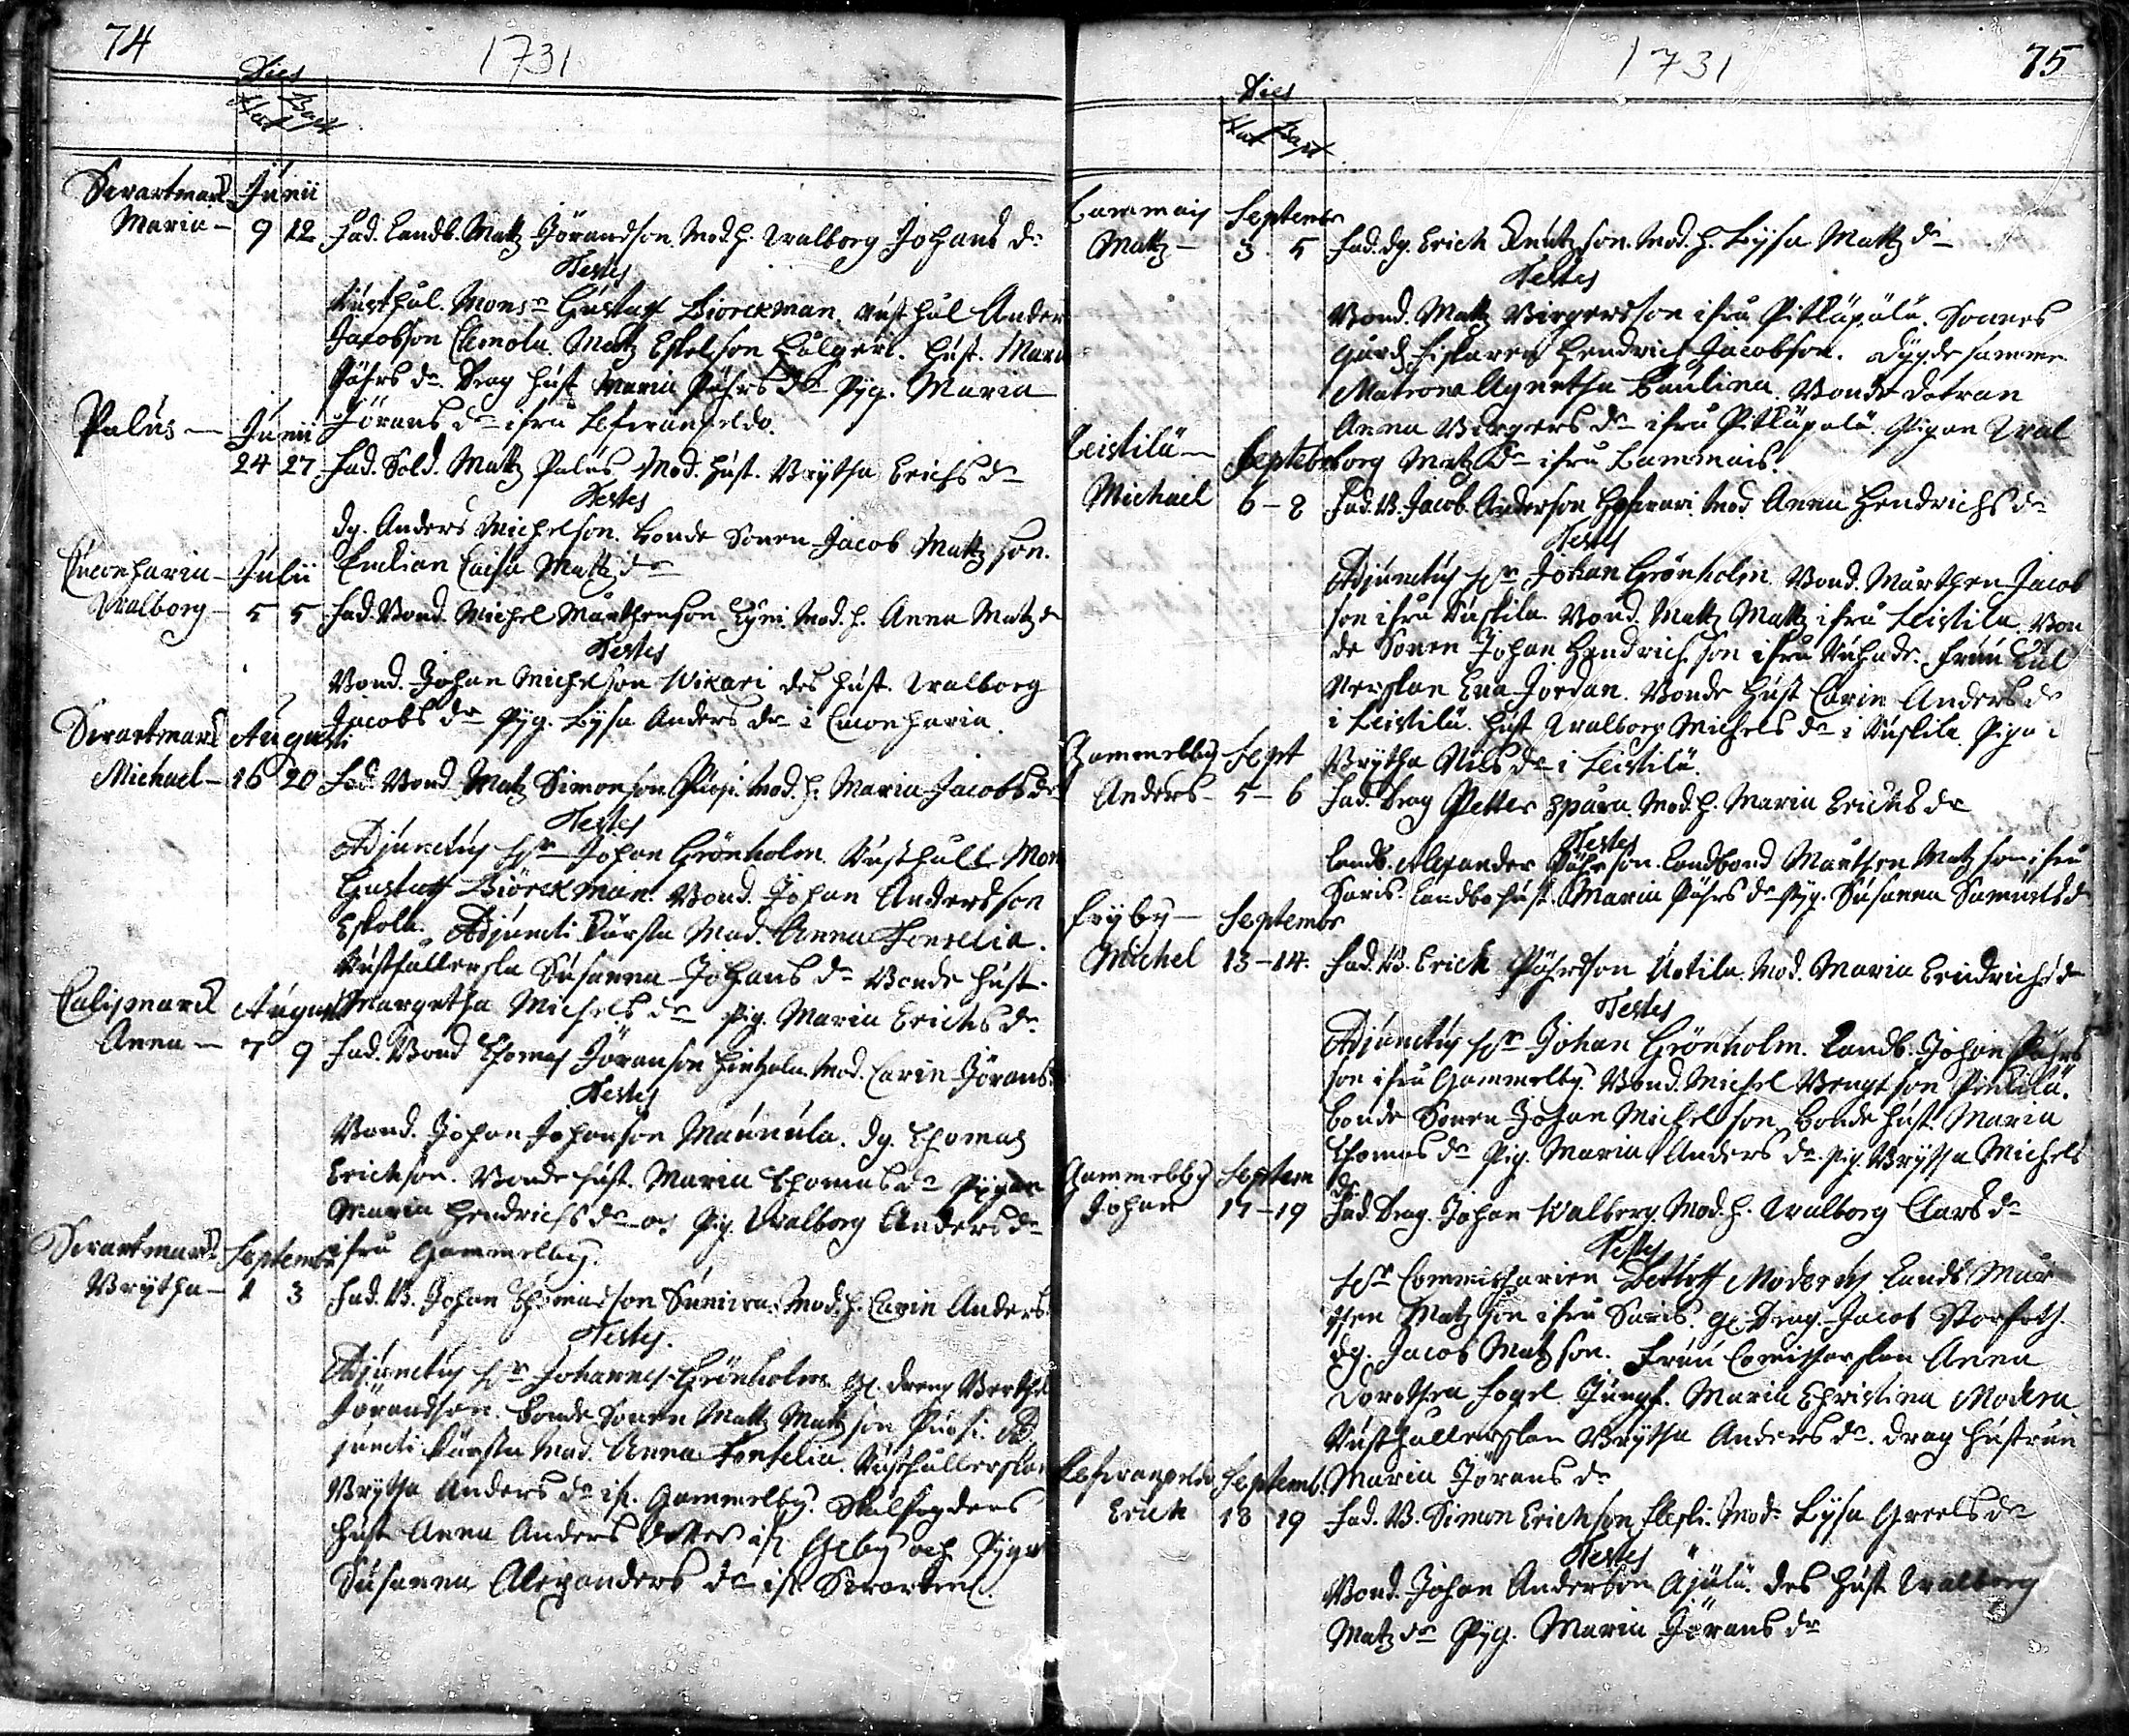 74
1731
Dies
Nat Bapt
Swartmark Junii
Maria - 9 12 Fad. Landb. Mattz Jörandson Mod. h. Walborg Johans dr
Testes
Rusthål. Monsr Gustaff Biörckman, Rusthål Anders
Jacobson Mattz Eskelson Hust. Maria
Påhrs dr. Drag Hust Maria Påhrs dr Pyg. Maria
Jörans dr ifrå
Palus - Junii
24 27 Fad. Sold. Mattz Palus Mod. Hust. Brytha Erichs dr
Testes
dg. Anders Michelson. Bonde Sonen Jacob Mattz son.
Caisa Mattz dr
Julii
Walborg - 5 5 Fad. Bond. Michel Mårthenson Mod. h. Anna Matz dr
Testes
Bond. Johan Michelson Wikari des Hust. Walborg
Jacobs dr Pyg. Lysa Anders dr i
Swartmark Augusti
Michael - 16 20 Fad. Bond Matz Simonson Mod. h. Maria Jacobs dr
Testes
Adjunctus Hr Johan Grönholm Rusthåll Mon
Gustaff Biörckman. Bond. Johan Andersson
Eskola. Adjuncti Kärsta Mad. Anna
Rusthållerska Susanna Johans dr Bonde Hust.
Margetha Michels dr Pig. Maria Erichs dr
Calismark August
Anna - 7 9 Fad. Bond Thomas Jöranson Mod. Carin Jörans
Testes
Bond. Johan Johanson Maunula. dg. Thomas
Erichson. Bonde hust. Maria Thomas dr Pygan
Maria Hendrichs dr och Pig. Walborg Anders dr
ifrå Gammelby.
Swartmark Septembr
Brytha - 1 3 Fad. B. Johan Thomasson Mod. h. Carin Anders
Testes.
Adjunctus Hr Johannes Grönholm. dreng Berthel
Jörandson. Bonde Sonen Mattz Mattz son Ad
juncti Kärsta Mad. Anna Rusthållerskan
Brytha Anders dr if. Gammelby.
Hust Anna Anders dotter if. och Pygan
Susanna Alexanders dr if. Swartm.
1731
75
Dies
Nat Bapt
Lammais Septembr
Mattz - 3 5 Fad. dg. Erich Knutzson. Mod. h. Lysa Mattz dr
Testes
Bond. Mattz Birgersson ifrå Pitkäpälä. Sonnes
gårdz fiskaren Hendrich Jacobson. Dygde samme
Matrona Agnetha Paulina. Bonde dotran
Anna Birgers dr ifrå Pitkäpälä. Pigan Wal
borg Matz dr ifrå Lammais.
Leistilä - Septebr
Michael 6 - 8 Fad. B. Jacob Anderson Mod Anna Hendrichs dr
Testes
Adjunctus Hr Johan Grönholm Bond. Mårthen Jacob
son ifrå Suskila Bond. Mattz Mattz ifrå Leistila Bon
de Sonen Johan Hendrichson ifrå fruu
Eva Jordan. Bonde Hust Carin Anders dr
i Leistilä. Hust Walborg Michels dr i Suskila. Piga
Brytha Nils dr i Leistilä.
Gammelby Sept
Anders - 5 - 6 Fad. Drag Petter Spåra. Mod. h. Maria Erichs dr
Testes
Landb. Alexander Påhrson. Landbond Mårthen Matz son ifrå
Saris. Landbohust. Maria Påhrs dr Pyg. Susanna Samuels dr
Fryby - Septembr
Michel 13 - 14. Fad. B. Erich Påhrson Uotila. Mod. Maria Hendrichs dr
Testes
Adjunctus Hr Johan Grönholm. Landb. Johan Påhrs
son ifrå Gammelby. Bond. Michel Bengtson
Bonde Sonen Johan Michelson Bonde Hust. Maria
Thomas dr Pig. Maria Anders dr. Pig. Brytha Michels
dr
Gammelby Septem
Johan 17 - 19 Fad. Drag. Johan Walberg. Mod. h. Walborg Clars dr
Testes
Hr Commissarien Detloff Landb. Mår
then Matz son ifrå Saris. Drag. Jacob
dg. Jacob Matz son. Fruu Commissarskan Anna
Dorothea Fogel. Jungf. Maria Christina Modera
Rusthållerskan Brytha Anders dr. Drag Hustrun
Maria Jörans dr
Septemb.
Erich 18 19 Fad. B. Simon Erichson Mod. Lysa Greels dr
Testes
Bond. Johan Anderson Äjälä. des Hust Walborg
Matz dr Pyg. Maria Jörans dr